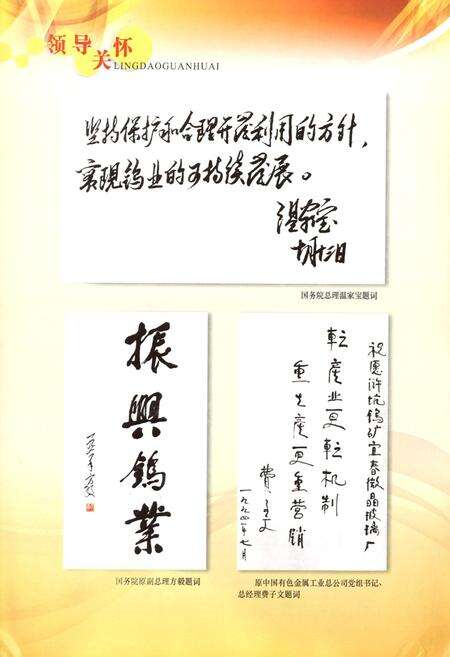 领导
关怀
LINGDAOGUANHUAI
坚持保护和合理开发利用的方针，
实现钨业的可持续发展。
温家宝
国务院总理温家宝题词
振興鎢業
一九 年 方毅
国务院原副总理方毅题词
祝愿浒坑钨矿宜春微晶玻璃厂
転産业更転机制
重生產更重营销
費子文
一九九四年七月
原中国有色金属工业总公司党组书记、
总经理费子文题词